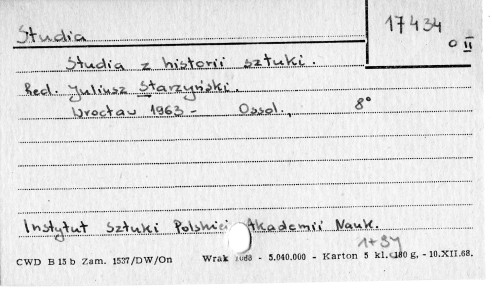 Studia
17434
o II
Studia z historii sztuki.
Red. Juliusz Starzyński.
Wrocław 1963 - Ossol., 8°
Instytut Sztuki Polskiej Akademii Nauk.
CWD B 15 b Zam. 1537/DW/On Wrak - 5.040.000 - Karton 5 kl. 180 g, - 10.XII.68.